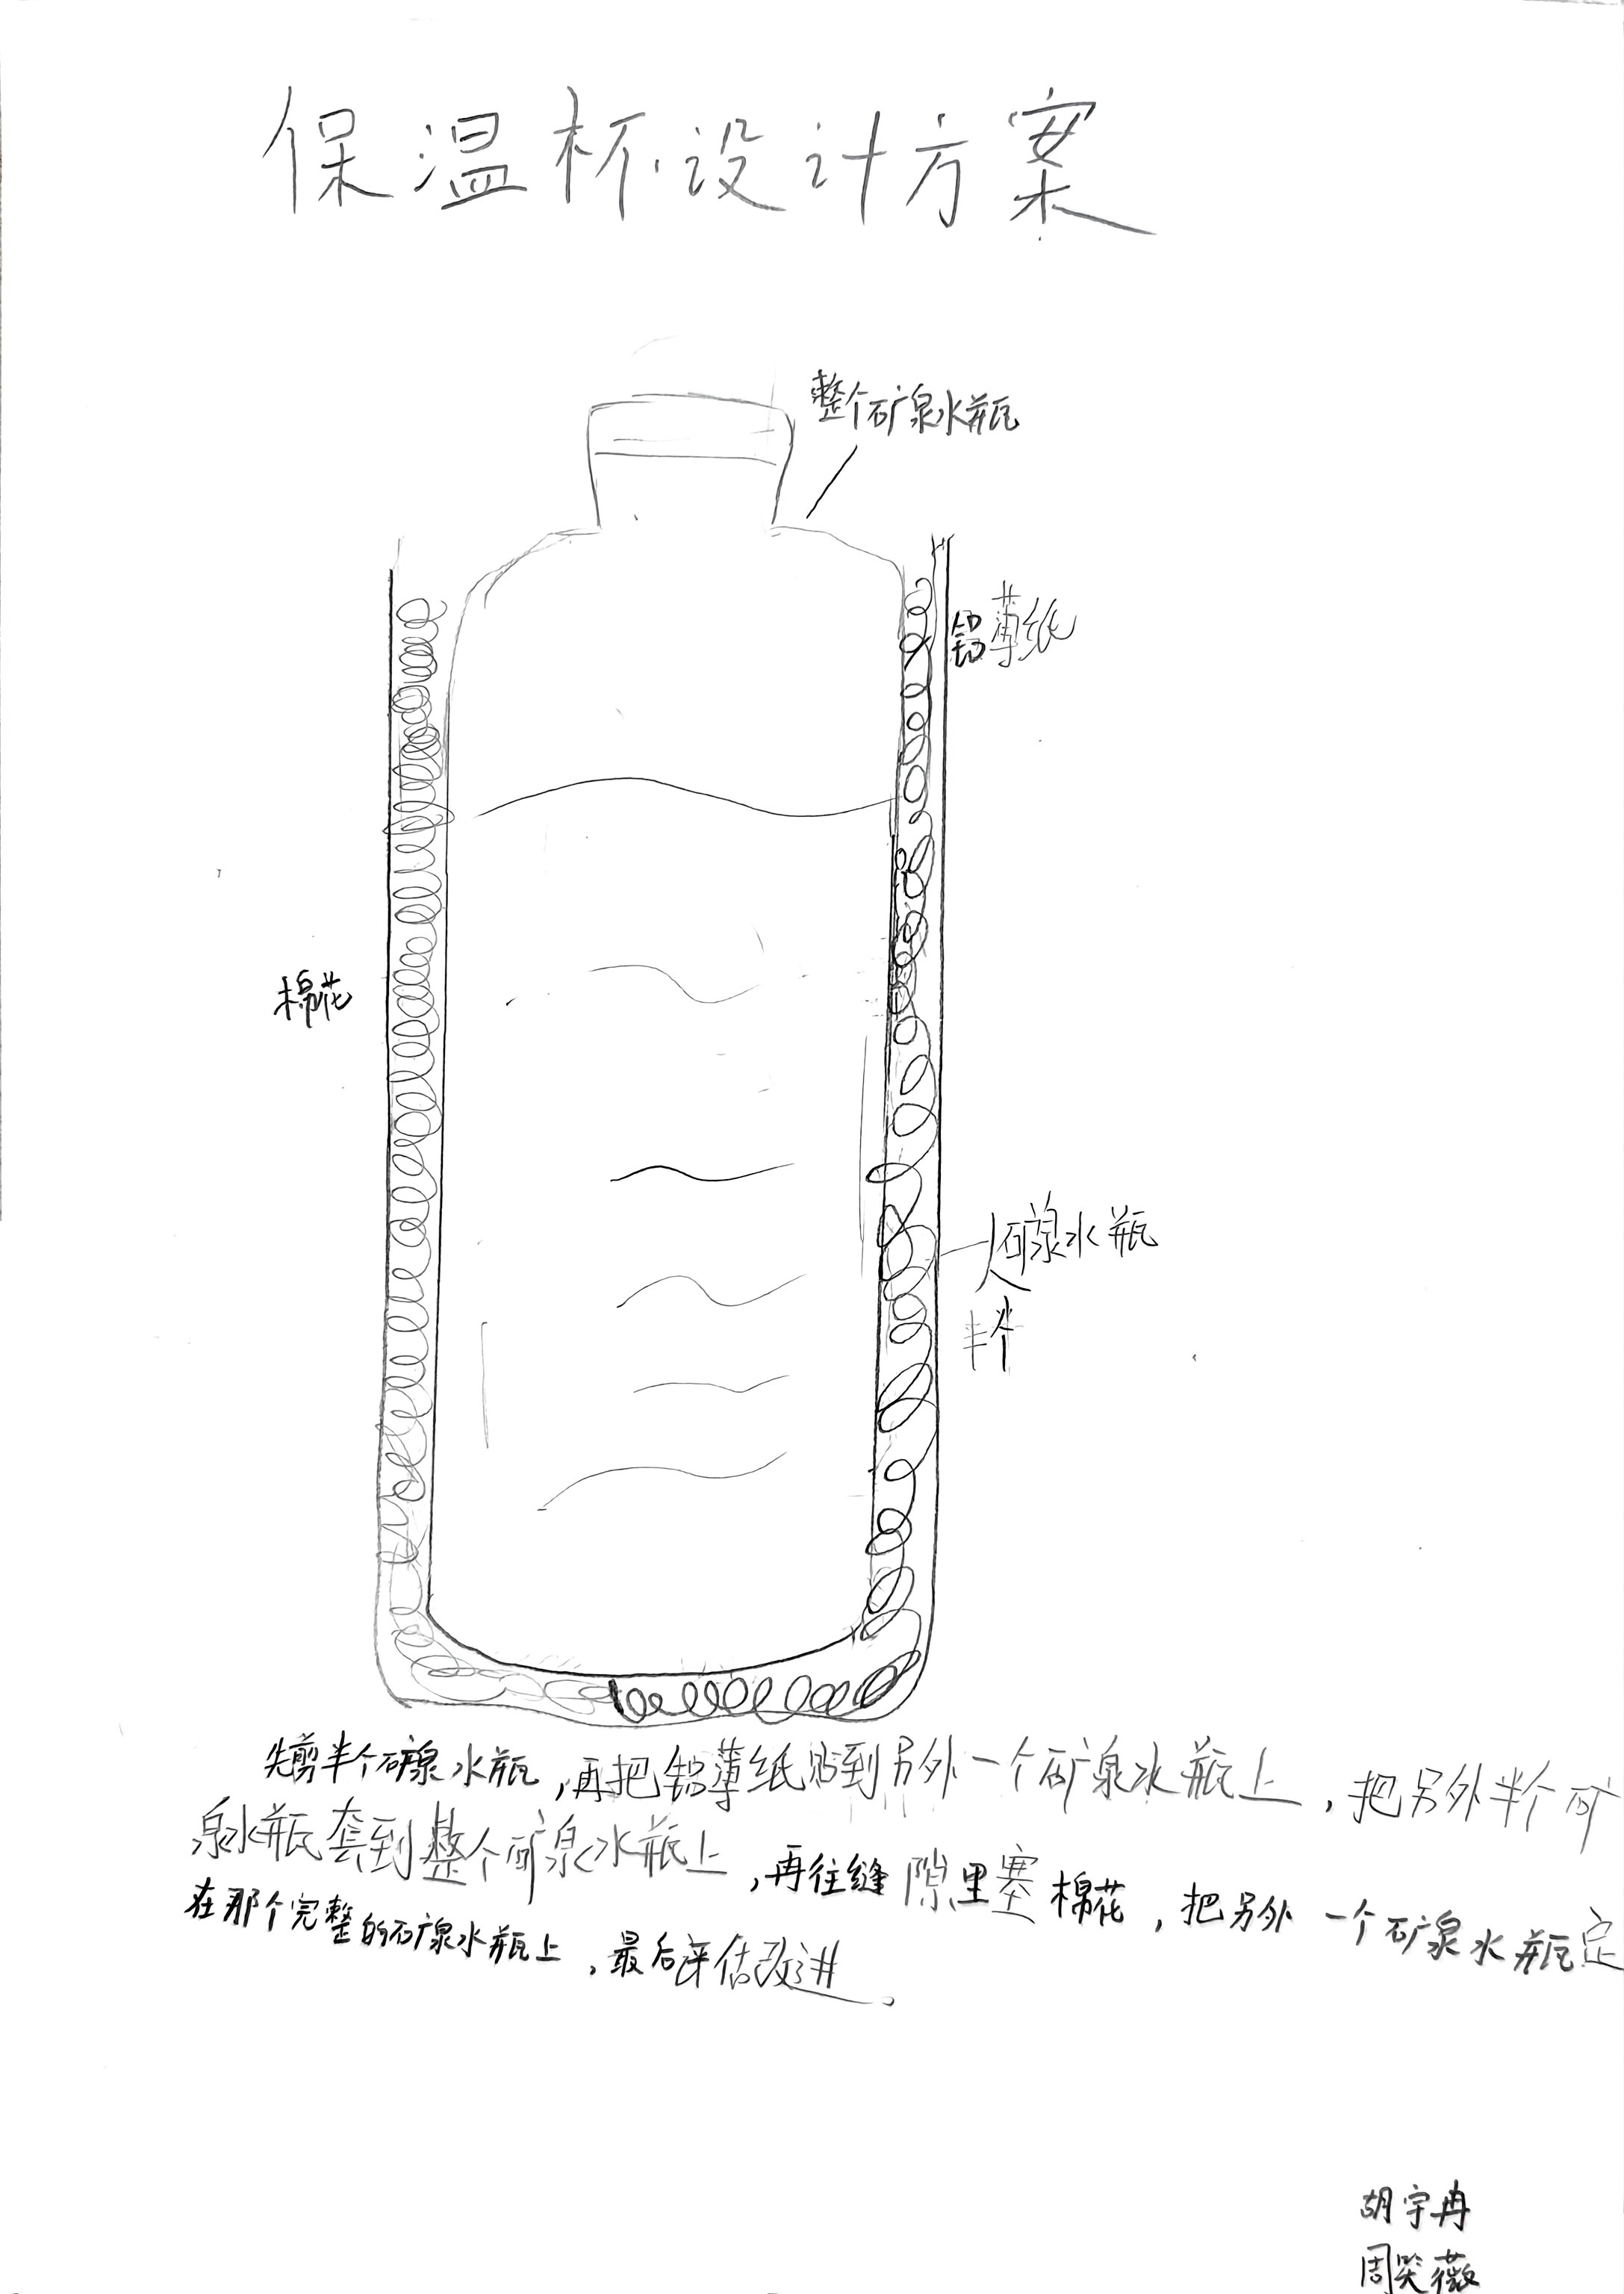 保温杯设计方案
整个矿泉水瓶
铝薄纸
棉花
矿泉水瓶
半个
先剪半个矿泉水瓶,再把铝薄纸贴到另外一个矿泉水瓶上,把另外半个矿
泉水瓶套到整个矿泉水瓶上,再往缝隙里塞棉花,把另外一个矿泉水瓶定
在那个完整的矿泉水瓶上,最后评估改进。
胡宇冉
周笑薇